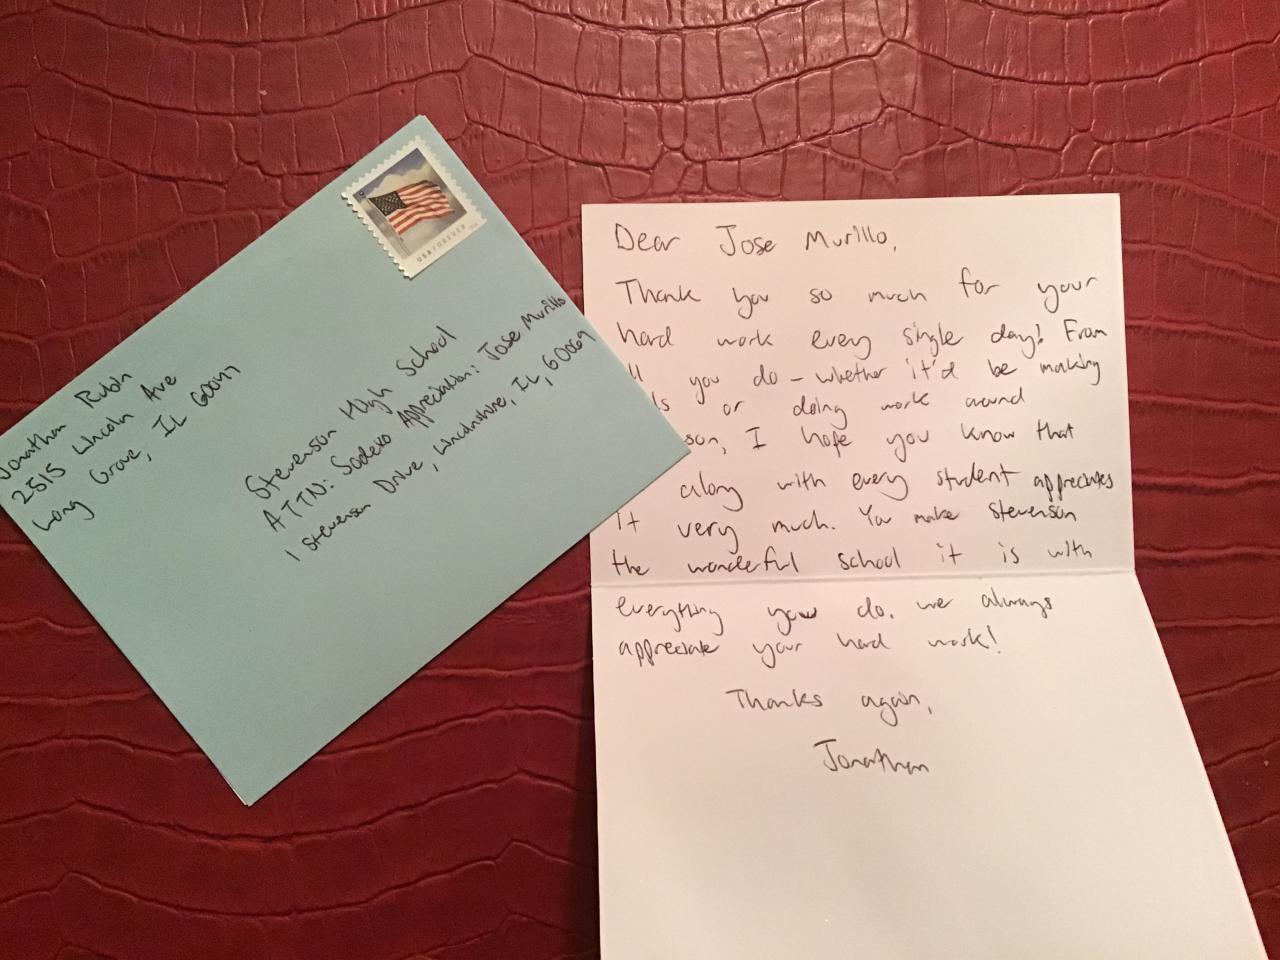 Jonathan Rubin
2515 Lincoln Ave
Long Grove, IL 60047
USA FOREVER
Stevenson High School
ATTN: Sodexo Appreciation: Jose Murillo
1 Stevenson Drive, Lincolnshire, IL, 60069
Dear Jose Murillo,
Thank you so much for your
hard work every single day! From
ll you do - whether it'd be making
ls or doing work around
son, I hope you know that
along with every student appreciates
it very much. You make Stevenson
the wonderful school it is with
everything you do. we always
appreciate your hard work!
Thanks again,
Jonathan